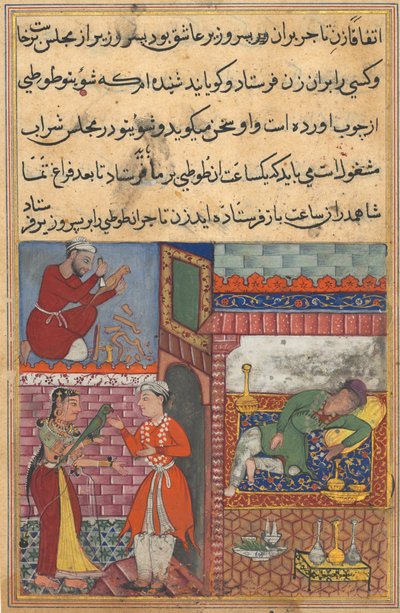 اتفاقا زن تاجر بران پسر وزیر عاشق بود پسر وزیر از مجلس برخاست
و کسی را بران زن فرستاد و کویاند شنیده ام که شوی تو طوطی
از چوب اورده است و او سخن میکوید و شوی تو در مجلس شراب
مشغولست می باید که یکساعت ان طوطی بر ما فرستاد تا بعد فراغ تماشا
هد از ساعت باز فرستاده اید زن تاجر ان طوطی را بر پسر وزیر فرستاد